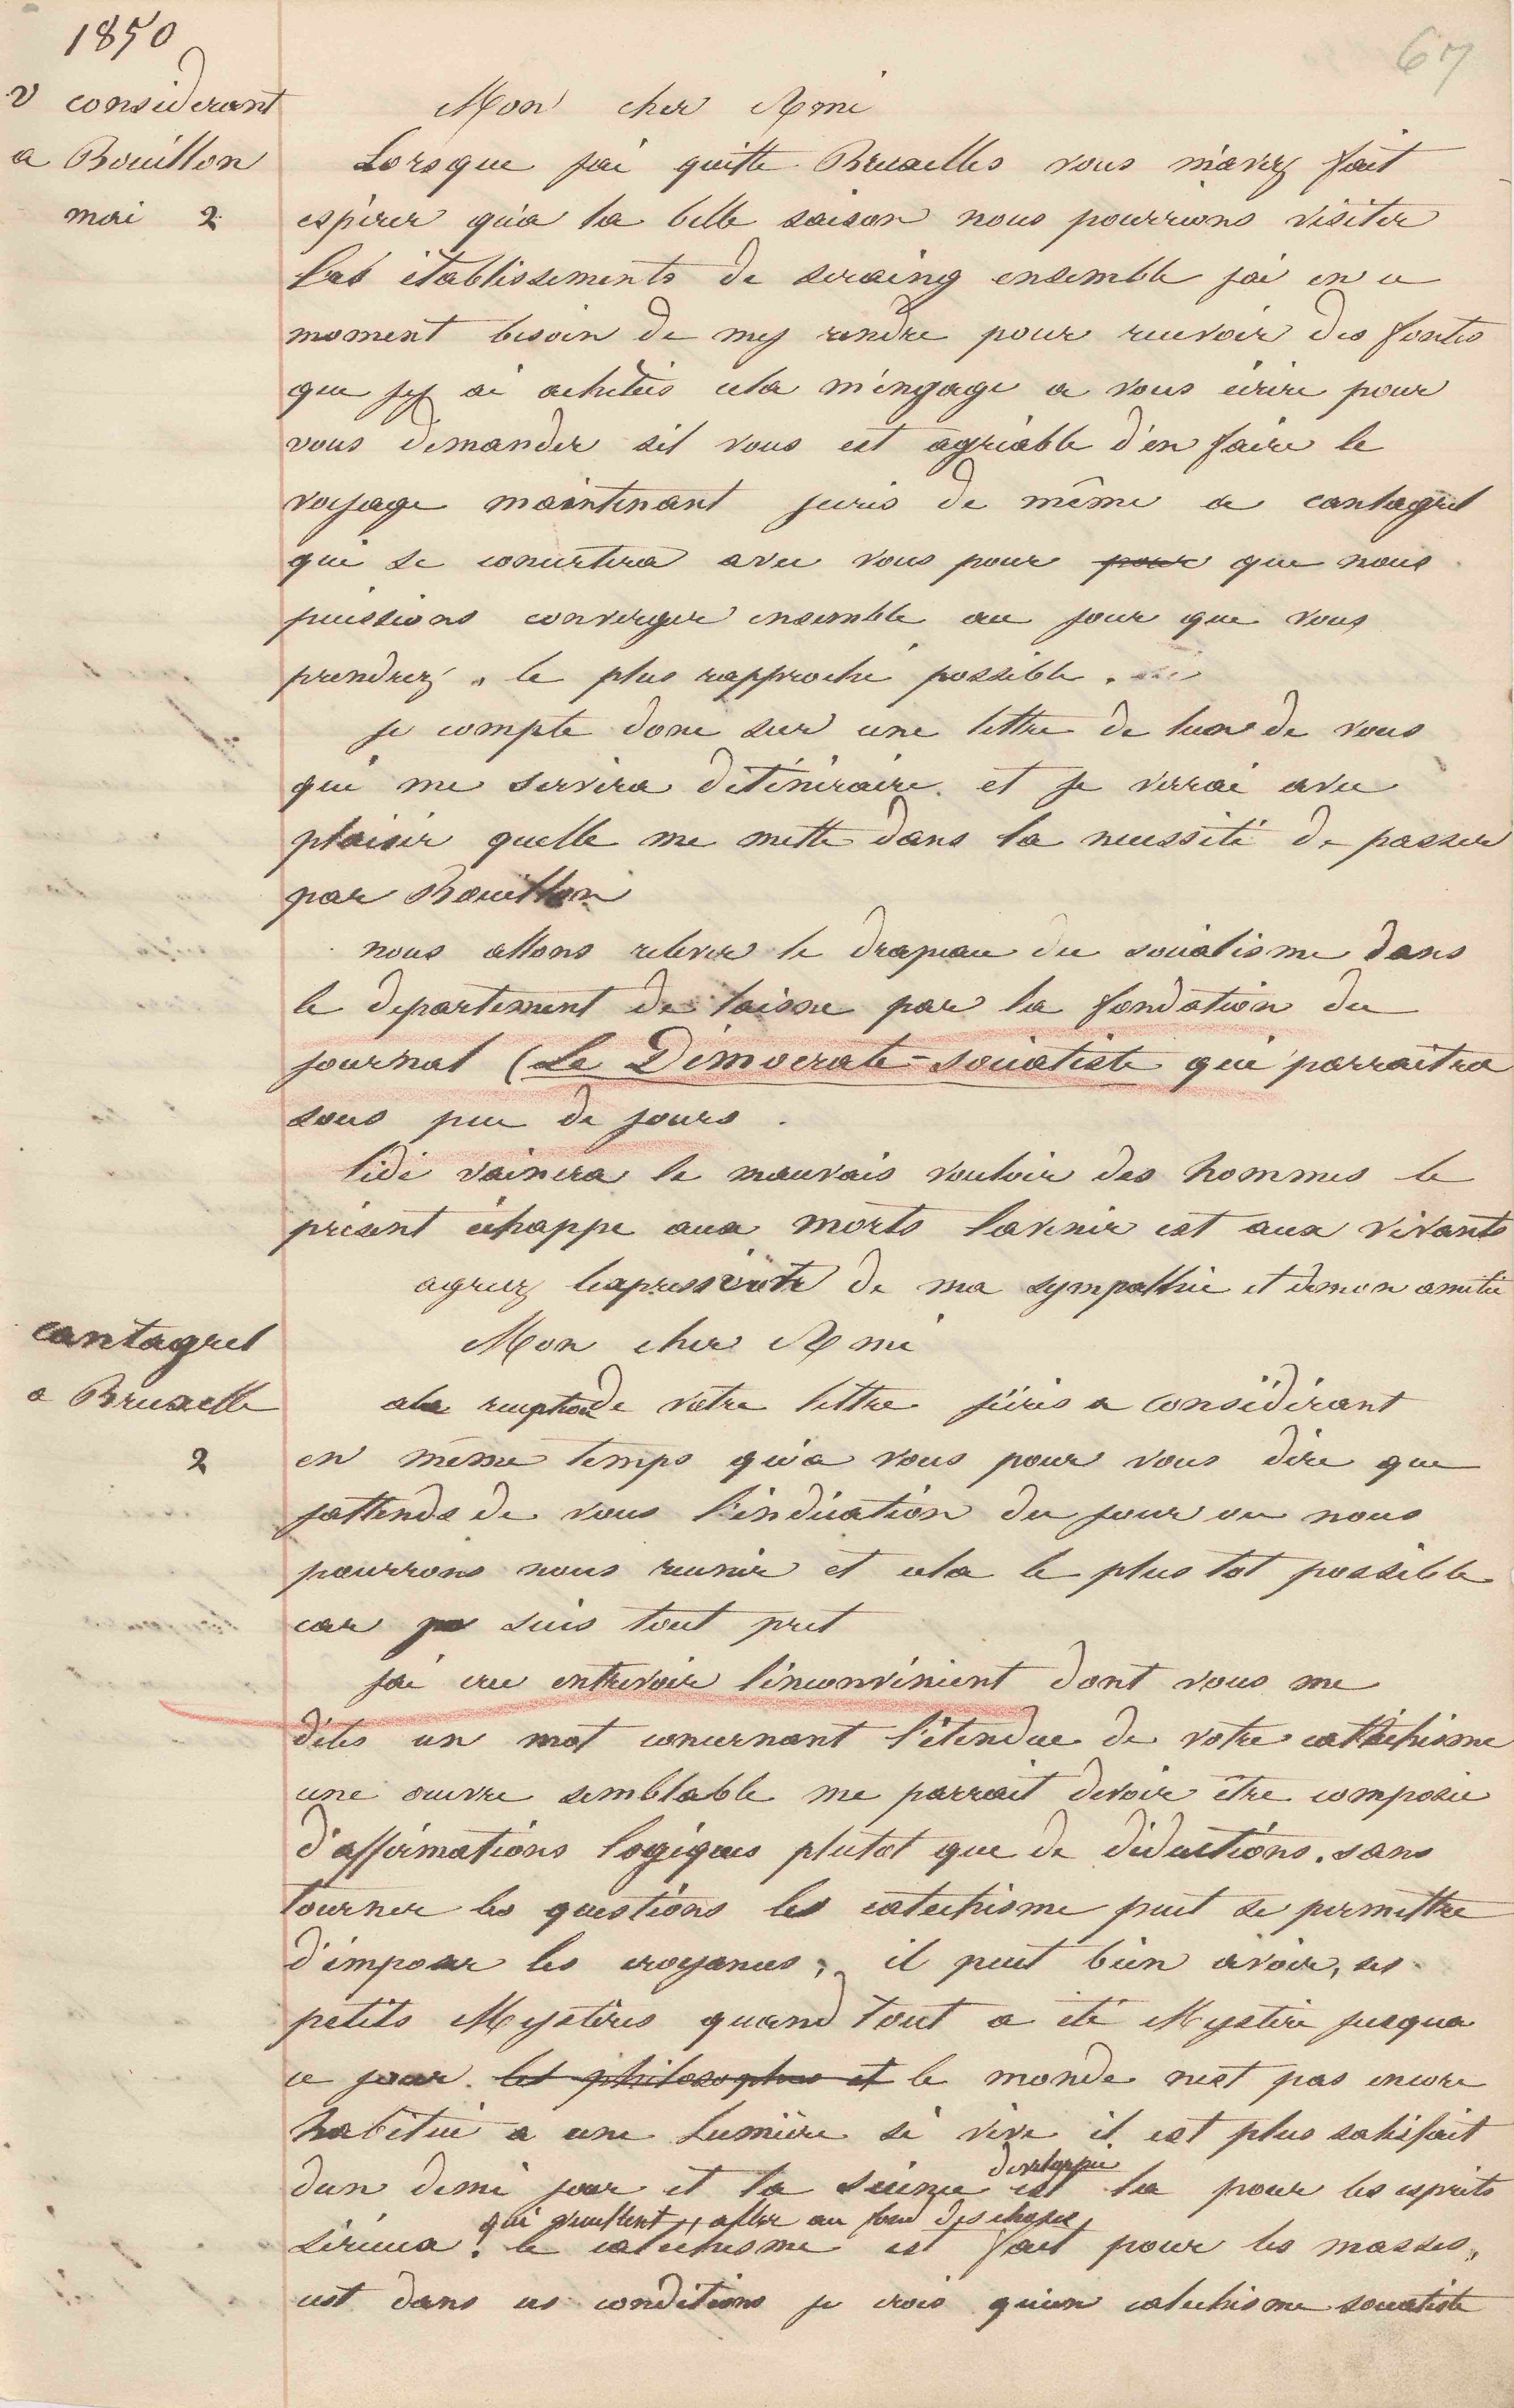 1850
67
v considerant
a Bouillon
mai 2
Mon cher Ami
Lorsque jai quitte Bruxelles vous m'avez fait
espérer qu'a la belle saison nous pourrions visiter
les établissements de seraing ensemble jai en ce
moment besoin de m'y rendre pour recevoir des fontes
que j'y ai achetées cela m'engage a vous écrire pour
vous demander sil vous est agréable d'en faire le
voyage maintenant jecris de même a cantagrel
qui se concertera avec vous pour pour que nous
puissions converger ensemble au jour que vous
prendrez, le plus rapproché possible.
je compte donc sur une lettre de lun de vous
qui me servira ditinéraire. et je verrai avec
plaisir quelle me mette dans la necessité de passer
par Bouillon
nous allons relever le drapeau du socialisme dans
le departement de laisne par la fondation du
journal (Le Démocrate-socialiste qui parraitra
sous peu de jours.
lidé vaincra le mauvais vouloir des hommes le
présent échappe aux morts lavenir est aux vivants
agreez lexpression de ma sympathie et de mon amitié
cantagrel
a Bruxelle
2
Mon cher Ami
a la reception de votre lettre j'écris a considérant
en même temps qu'a vous pour vous dire que
jattends de vous l'indication du jour ou nous
pourrons nous reunir et cela le plus tot possible
car je suis tout pret
jai cru entrevoir linconvénient dont vous me
dites un mot concernant l'étendue de votre catéchisme
une œuvre semblable me parrait devoir être composée
d'affirmations logiques plutot que de déductions. sans
tourner les questions le catechisme peut se permettre
d'imposer les croyances; il peut bien avoir, ses
petits Mystères quand tout a été Mystère jusqua
ce jour. les philosophes et le monde nest pas encore
habitué a une Lumière si vive il est plus satisfait
dun demi jour et la science developpée est la pour les esprits
sérieux qui veullent aller au fond des choses. le catechisme est fait pour les masses,
cest dans ces conditions je crois qu'un catechisme socialiste